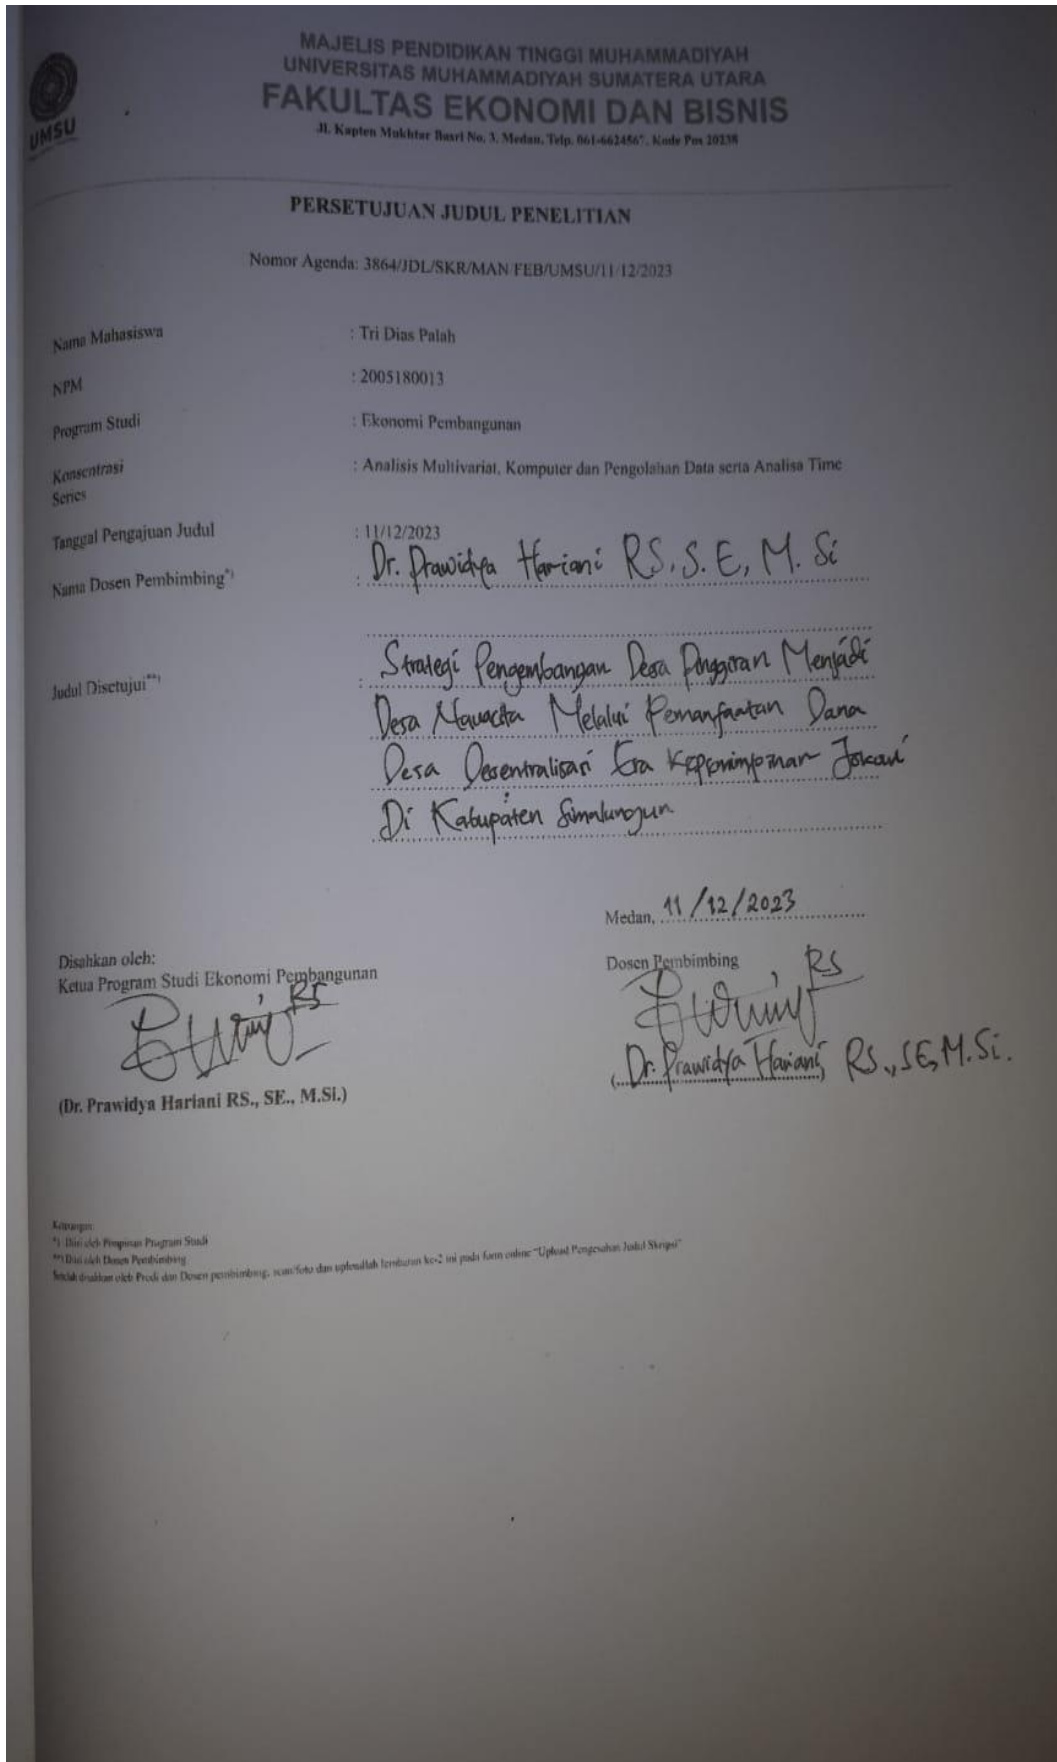 MAJELIS PENDIDIKAN TINGGI MUHAMMADIYAH
UNIVERSITAS MUHAMMADIYAH SUMATERA UTARA
FAKULTAS EKONOMI DAN BISNIS
Jl. Kapten Mukhtar Basri No. 3, Medan, Telp. 061-6624567, Kode Pos 20238
UMSU
PERSETUJUAN JUDUL PENELITIAN
Nomor Agenda: 3864/JDL/SKR/MAN/FEB/UMSU/11/12/2023
Nama Mahasiswa : Tri Dias Palah
NPM : 2005180013
Program Studi : Ekonomi Pembangunan
Konsentrasi : Analisis Multivariat, Komputer dan Pengolahan Data serta Analisa Time
Series
Tanggal Pengajuan Judul : 11/12/2023
Nama Dosen Pembimbing*) : Dr. Prawidya Hariani RS, S.E, M. Si
Judul Disetujui**) : Strategi Pengembangan Desa Pinggiran Menjadi
Desa Nawacita Melalui Pemanfaatan Dana
Desa Desentralisasi Era Kepemimpinan Jokowi
Di Kabupaten Simalungun
Medan, 11/12/2023
Disahkan oleh:
Ketua Program Studi Ekonomi Pembangunan
Dosen Pembimbing
, RS
, RS
(Dr. Prawidya Hariani RS., SE., M.Si.)
(Dr. Prawidya Hariani, RS., SE, M.Si.
Keterangan:
*) Diisi oleh Pimpinan Program Studi
**) Diisi oleh Dosen Pembimbing
Setelah disahkan oleh Prodi dan Dosen pembimbing, scan/foto dan uploadlah lembaran ke-2 ini pada form online "Upload Pengesahan Judul Skripsi"